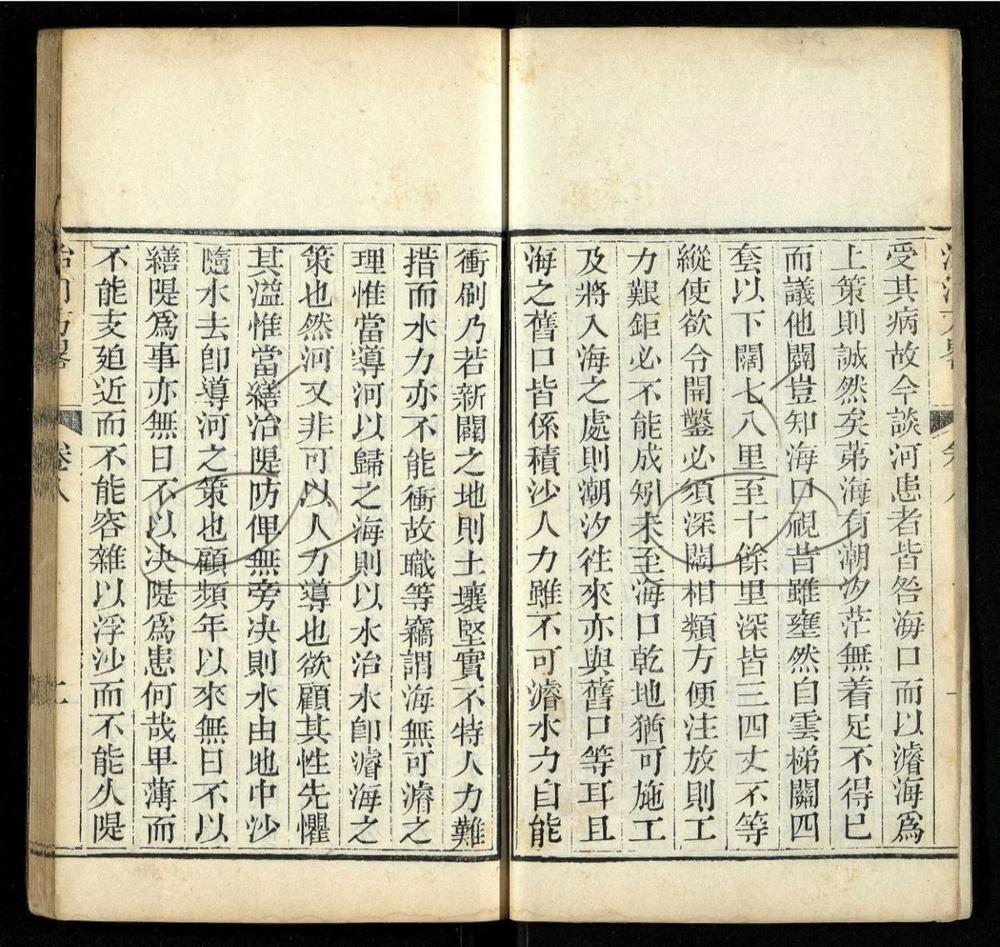 受其病故今談河患者皆咎海口而以濬海爲
上策則誠然矣苐海有潮汐茫無着足不得已
而議他闢豈知海口視昔雖壅然自雲梯關四
套以下闊七八里至十餘里深皆三四丈不等
縱使欲令開鑿必須深闊相類方便注放則工
力艱鉅必不能成矧未至海口乾地猶可施工
及將入海之處則潮汐徃來亦與舊口等耳且
海之舊口皆係積沙人力雖不可濬水力自能
衝刷乃若新闢之地則土壤堅實不特人力難
措而水力亦不能衝故職等竊謂海無可濬之
理惟當導河以歸之海則以水治水卽濬海之
策也然河又非可以人力導也欲顧其性先懼
其溢惟當繕治隄防俾無旁决則水由地中沙
隨水去卽導河之策也顧頻年以來無日不以
繕隄爲事亦無日不以决隄爲患何哉卑薄而
不能支廹近而不能容雜以浮沙而不能久隄
治河方畧
卷八